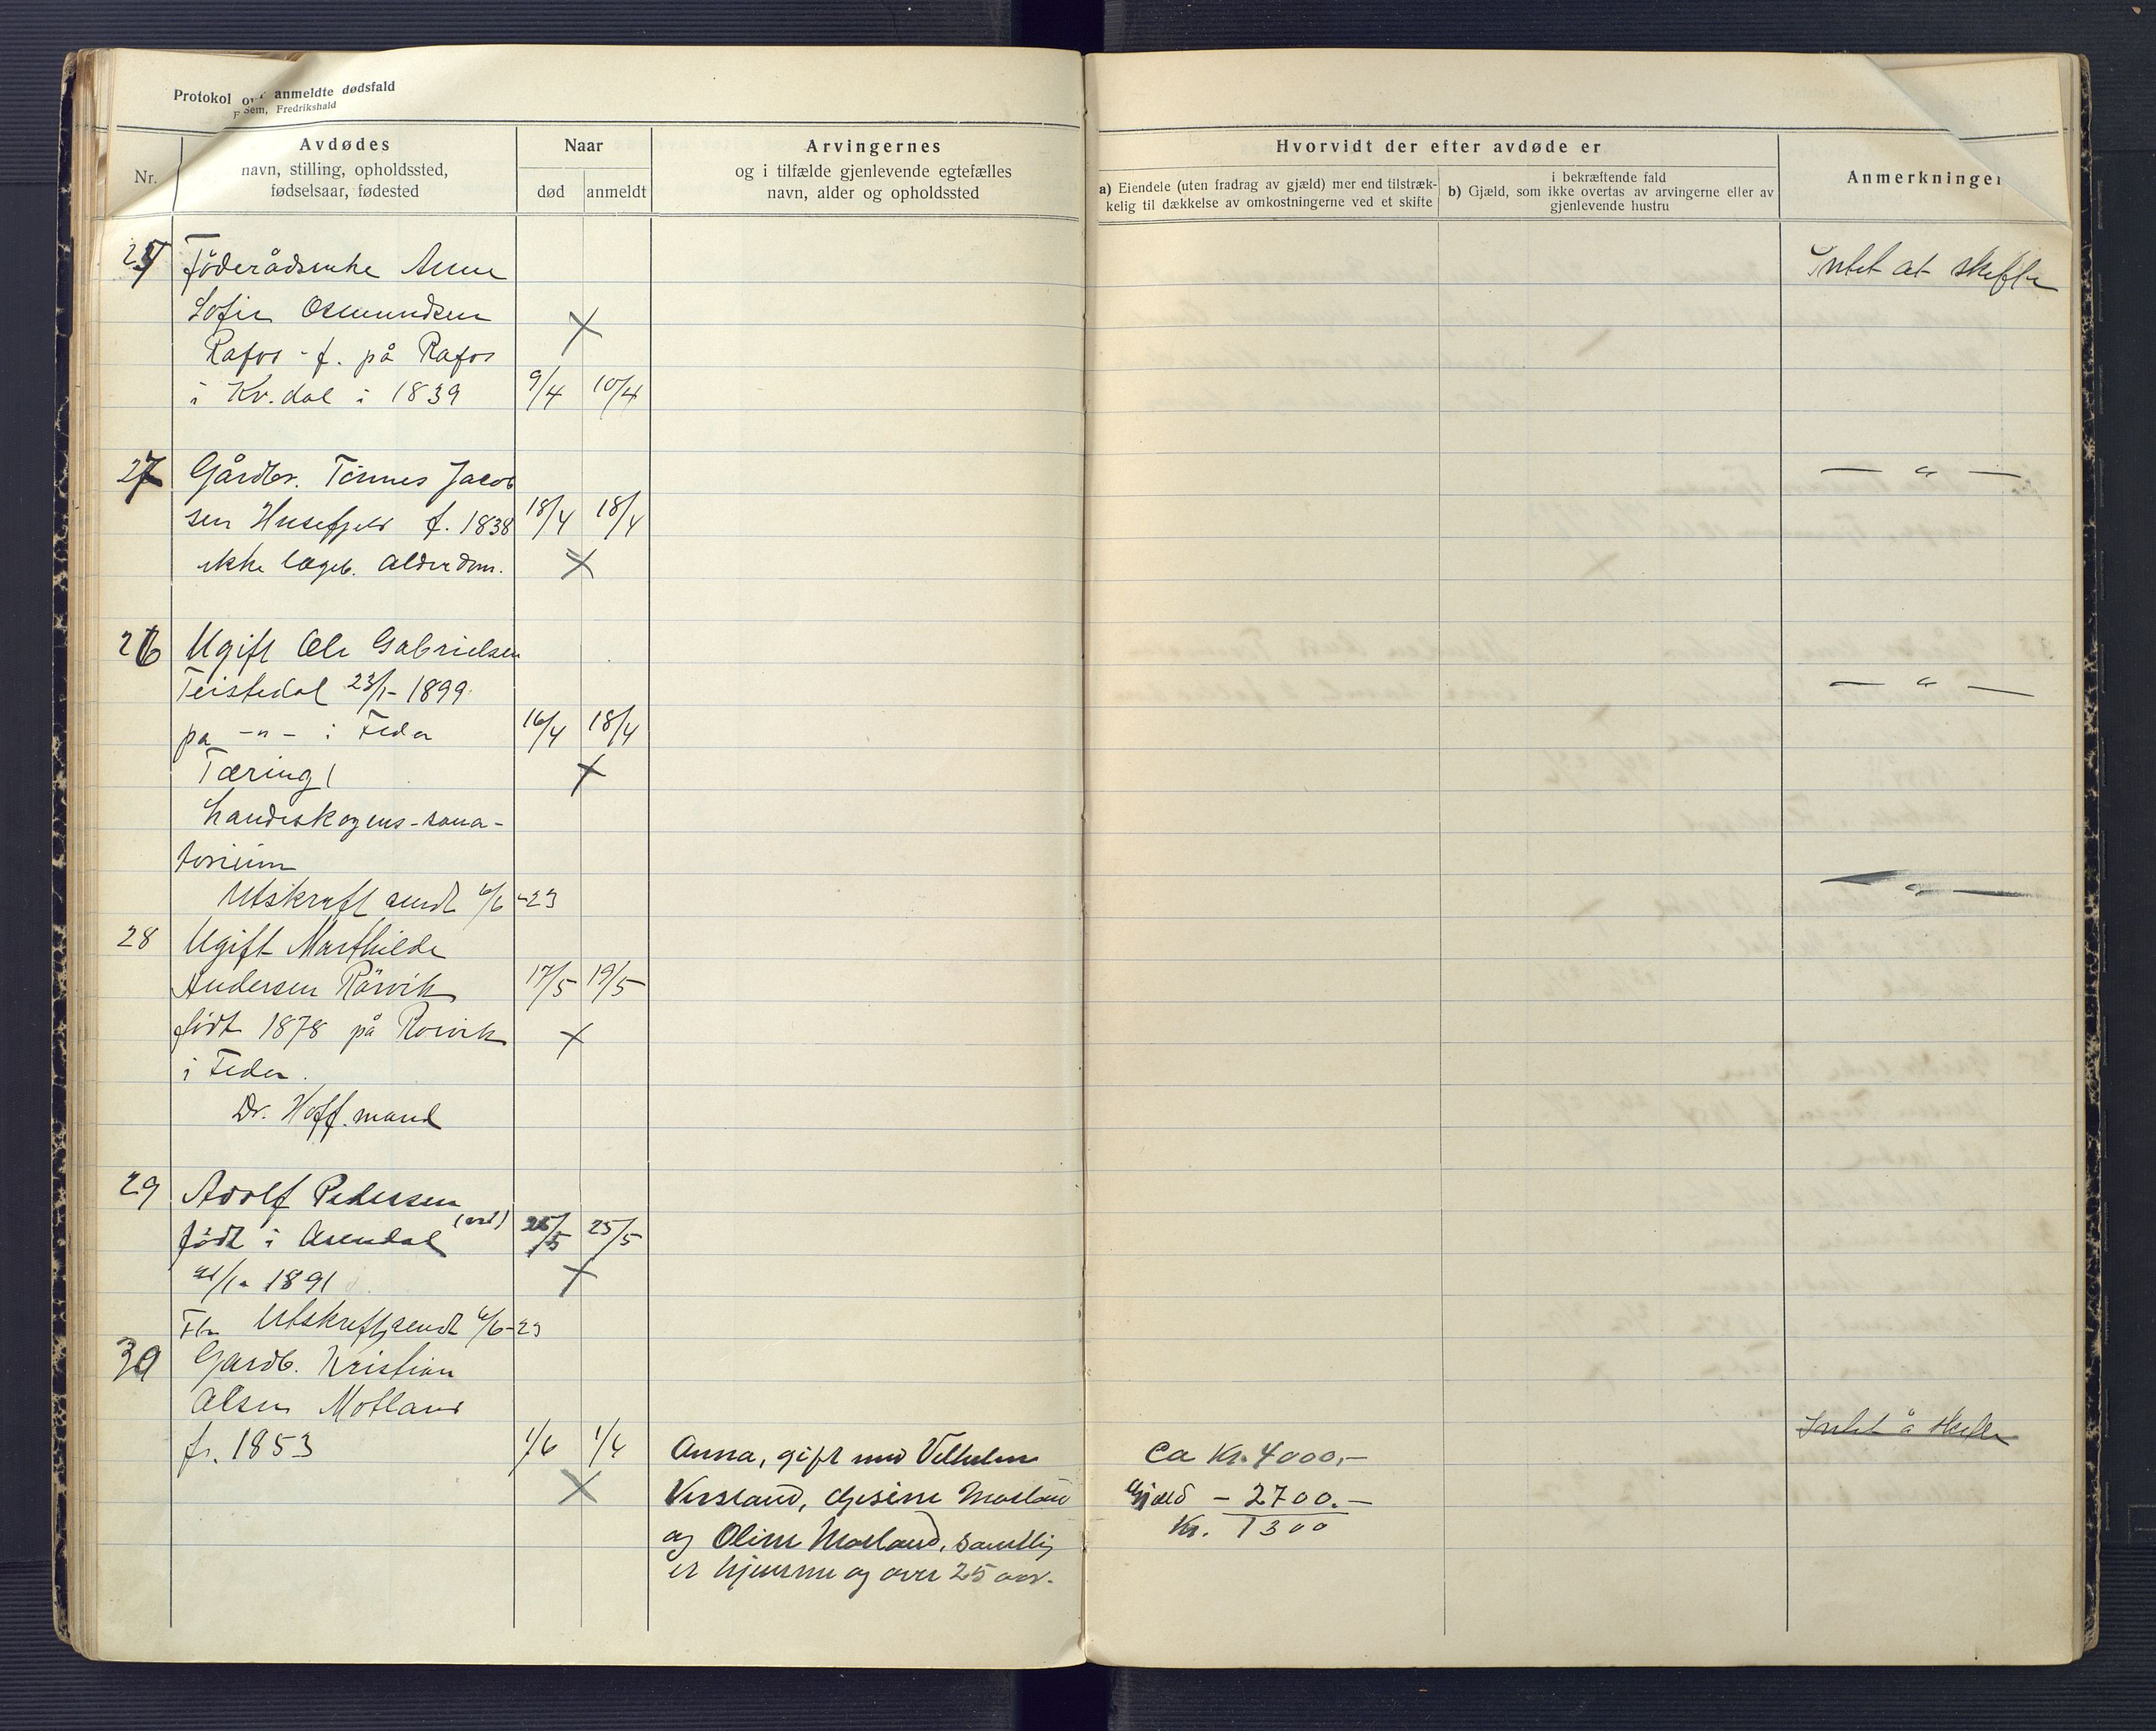 Protokol over anmeldte dødsfald
Sem, Fredrikshald
Nr.
Avdødes
navn, stilling, opholdssted,
fødselsaar, fødested
Naar
død
anmeldt
Arvingernes
og i tilfælde gjenlevende egtefælles
navn, alder og opholdssted
Hvorvidt der efter avdøde er
a) Eiendele (uten fradrag av gjæld) mer end tilstræk-
kelig til dækkelse av omkostningerne ved et skifte
i bekræftende fald
b) Gjæld, som ikke overtas av arvingerne eller av
gjenlevende hustru
Anmerkninger
25 Föderådsenke Anne Intet at skifte
Sofie Osmundsen
Rafos - f. på Rafos
i Kv.dal i 1839 9/4 10/4
27 Gårdbr. Tönnes Jacob — " —
sen Husefjeld f. 1838 18/4 18/4
ikke lægeb. Alderdom.
26 Ugift Ole Gabrielsen
Teistedal 23/1- 1899 — " —
på -"- i Feda 16/4 18/4
Tæring
Landeskogens-sana-
torium
Utskrift sendt 6/6-23 — " —
28 Ugift Marthilde
Andersen Rörvik 17/5 19/5
født 1878 på Rörvik
i Feda.
Dr. Hoffmand
29 Adolf Pedersen
født i Arendal 25/5 25/5
1891
Utskrift sendt 6/6-23
30 Gardb. Kristian
Olsen Motland Intet å skifte
f. 1853 1/6 1/6 Anna, gift med Vilhelm Ca Kr. 4000,-
Versland, Gesine Motland Gjæld - 2700.-
og Oline Motland, samtlig Kr. 1300
er hjemme og over 25 aar.